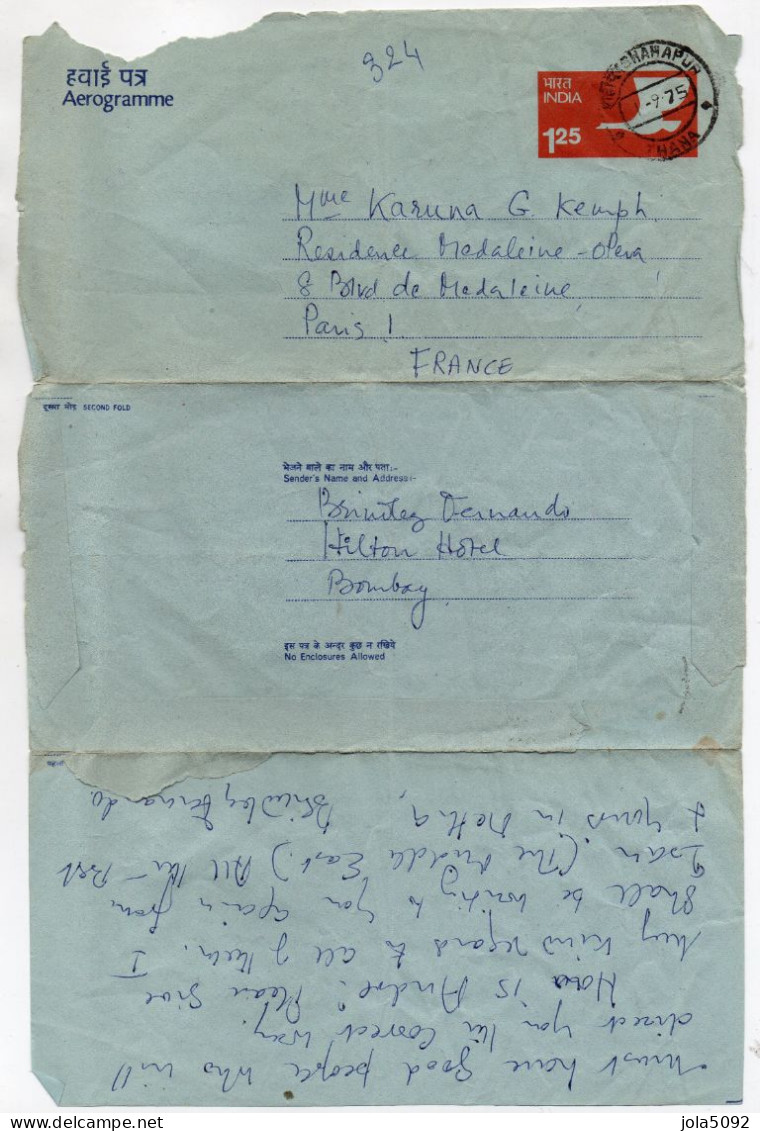 हवाई पत्र
Aerogramme
324
भारत
INDIA
1.25
-9.75
THANA
Mme Karuna G. Kemph
Residence Medaleine - Opera
8 Blvd de Medaleine
Paris 1
FRANCE
दूसरा मोड़ SECOND FOLD
भेजने वाले का नाम और पता:-
Sender's Name and Address:-
Fernando
Hilton Hotel
Bombay
इस पत्र के अन्दर कुछ न रखिये
No Enclosures Allowed
must have good people who will
direct you the correct way.
How is Andre? Please give
my kind regards to all of them. I
shall be writing to you again from
Iran (The Middle East.) All the Best
& yours in Metta,
Fernando
jola5092